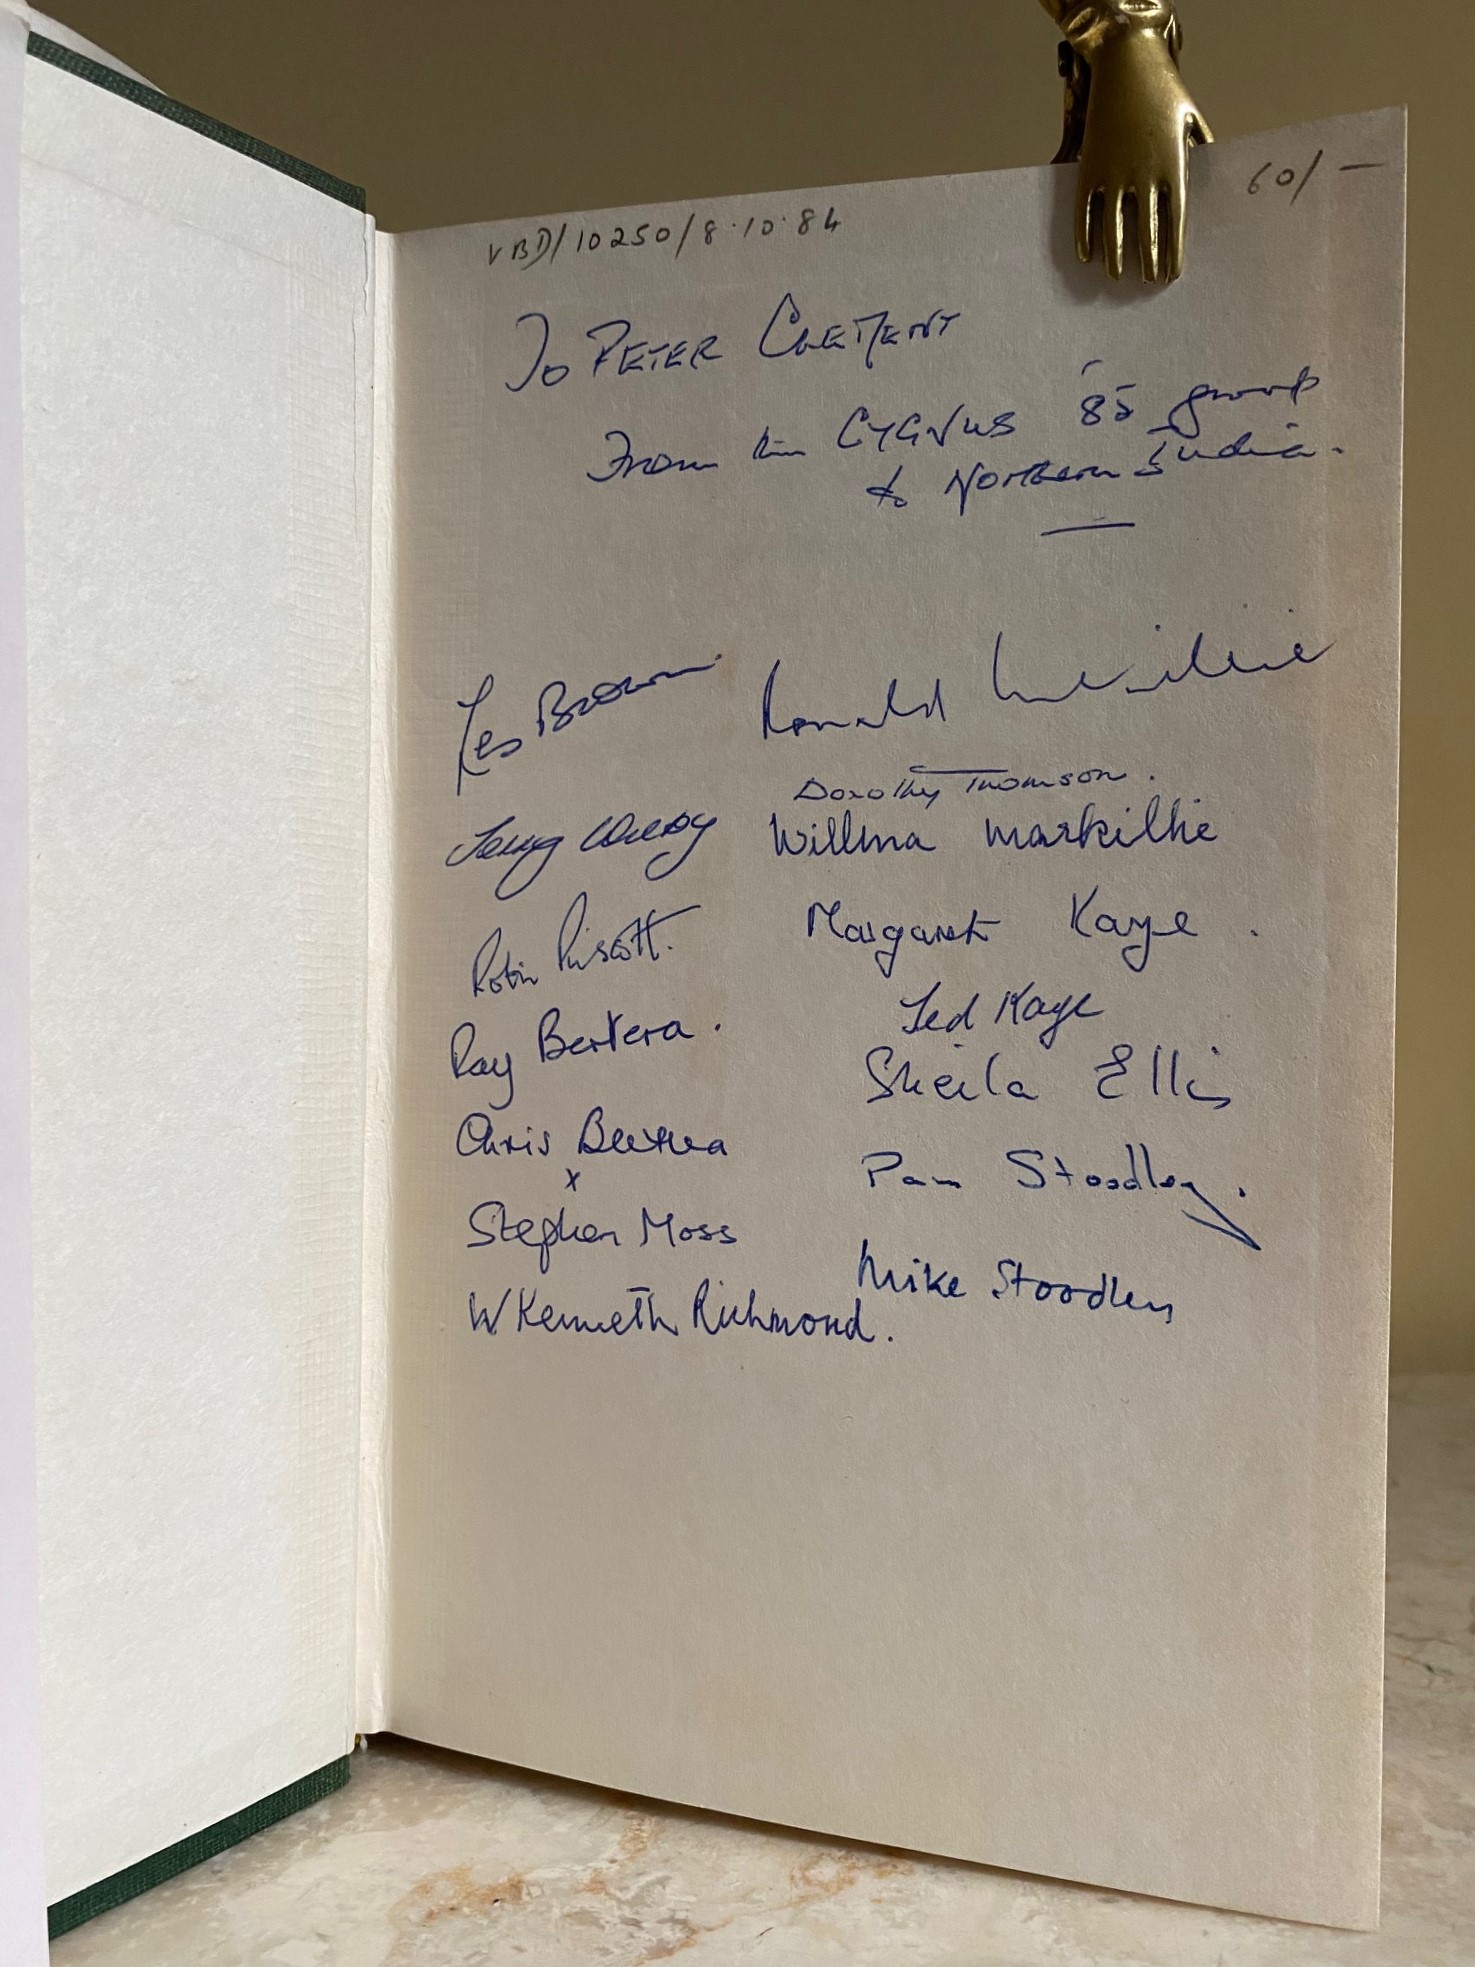 VBD/10250/8.10.84
60/-
To PETER CLEMENT
From the CYGNUS '85 group
to Northern India.
Les Brown.
Ronald
Dorothy Thomson.
Willma Markillie
Robin
Margaret Kaye.
Ray Bertera.
Ted Kaye
Sheila Ellis
Chris Bertera
x
Pam Stoodley.
Stephen Moss
Mike Stoodley
W Kenneth Richmond.